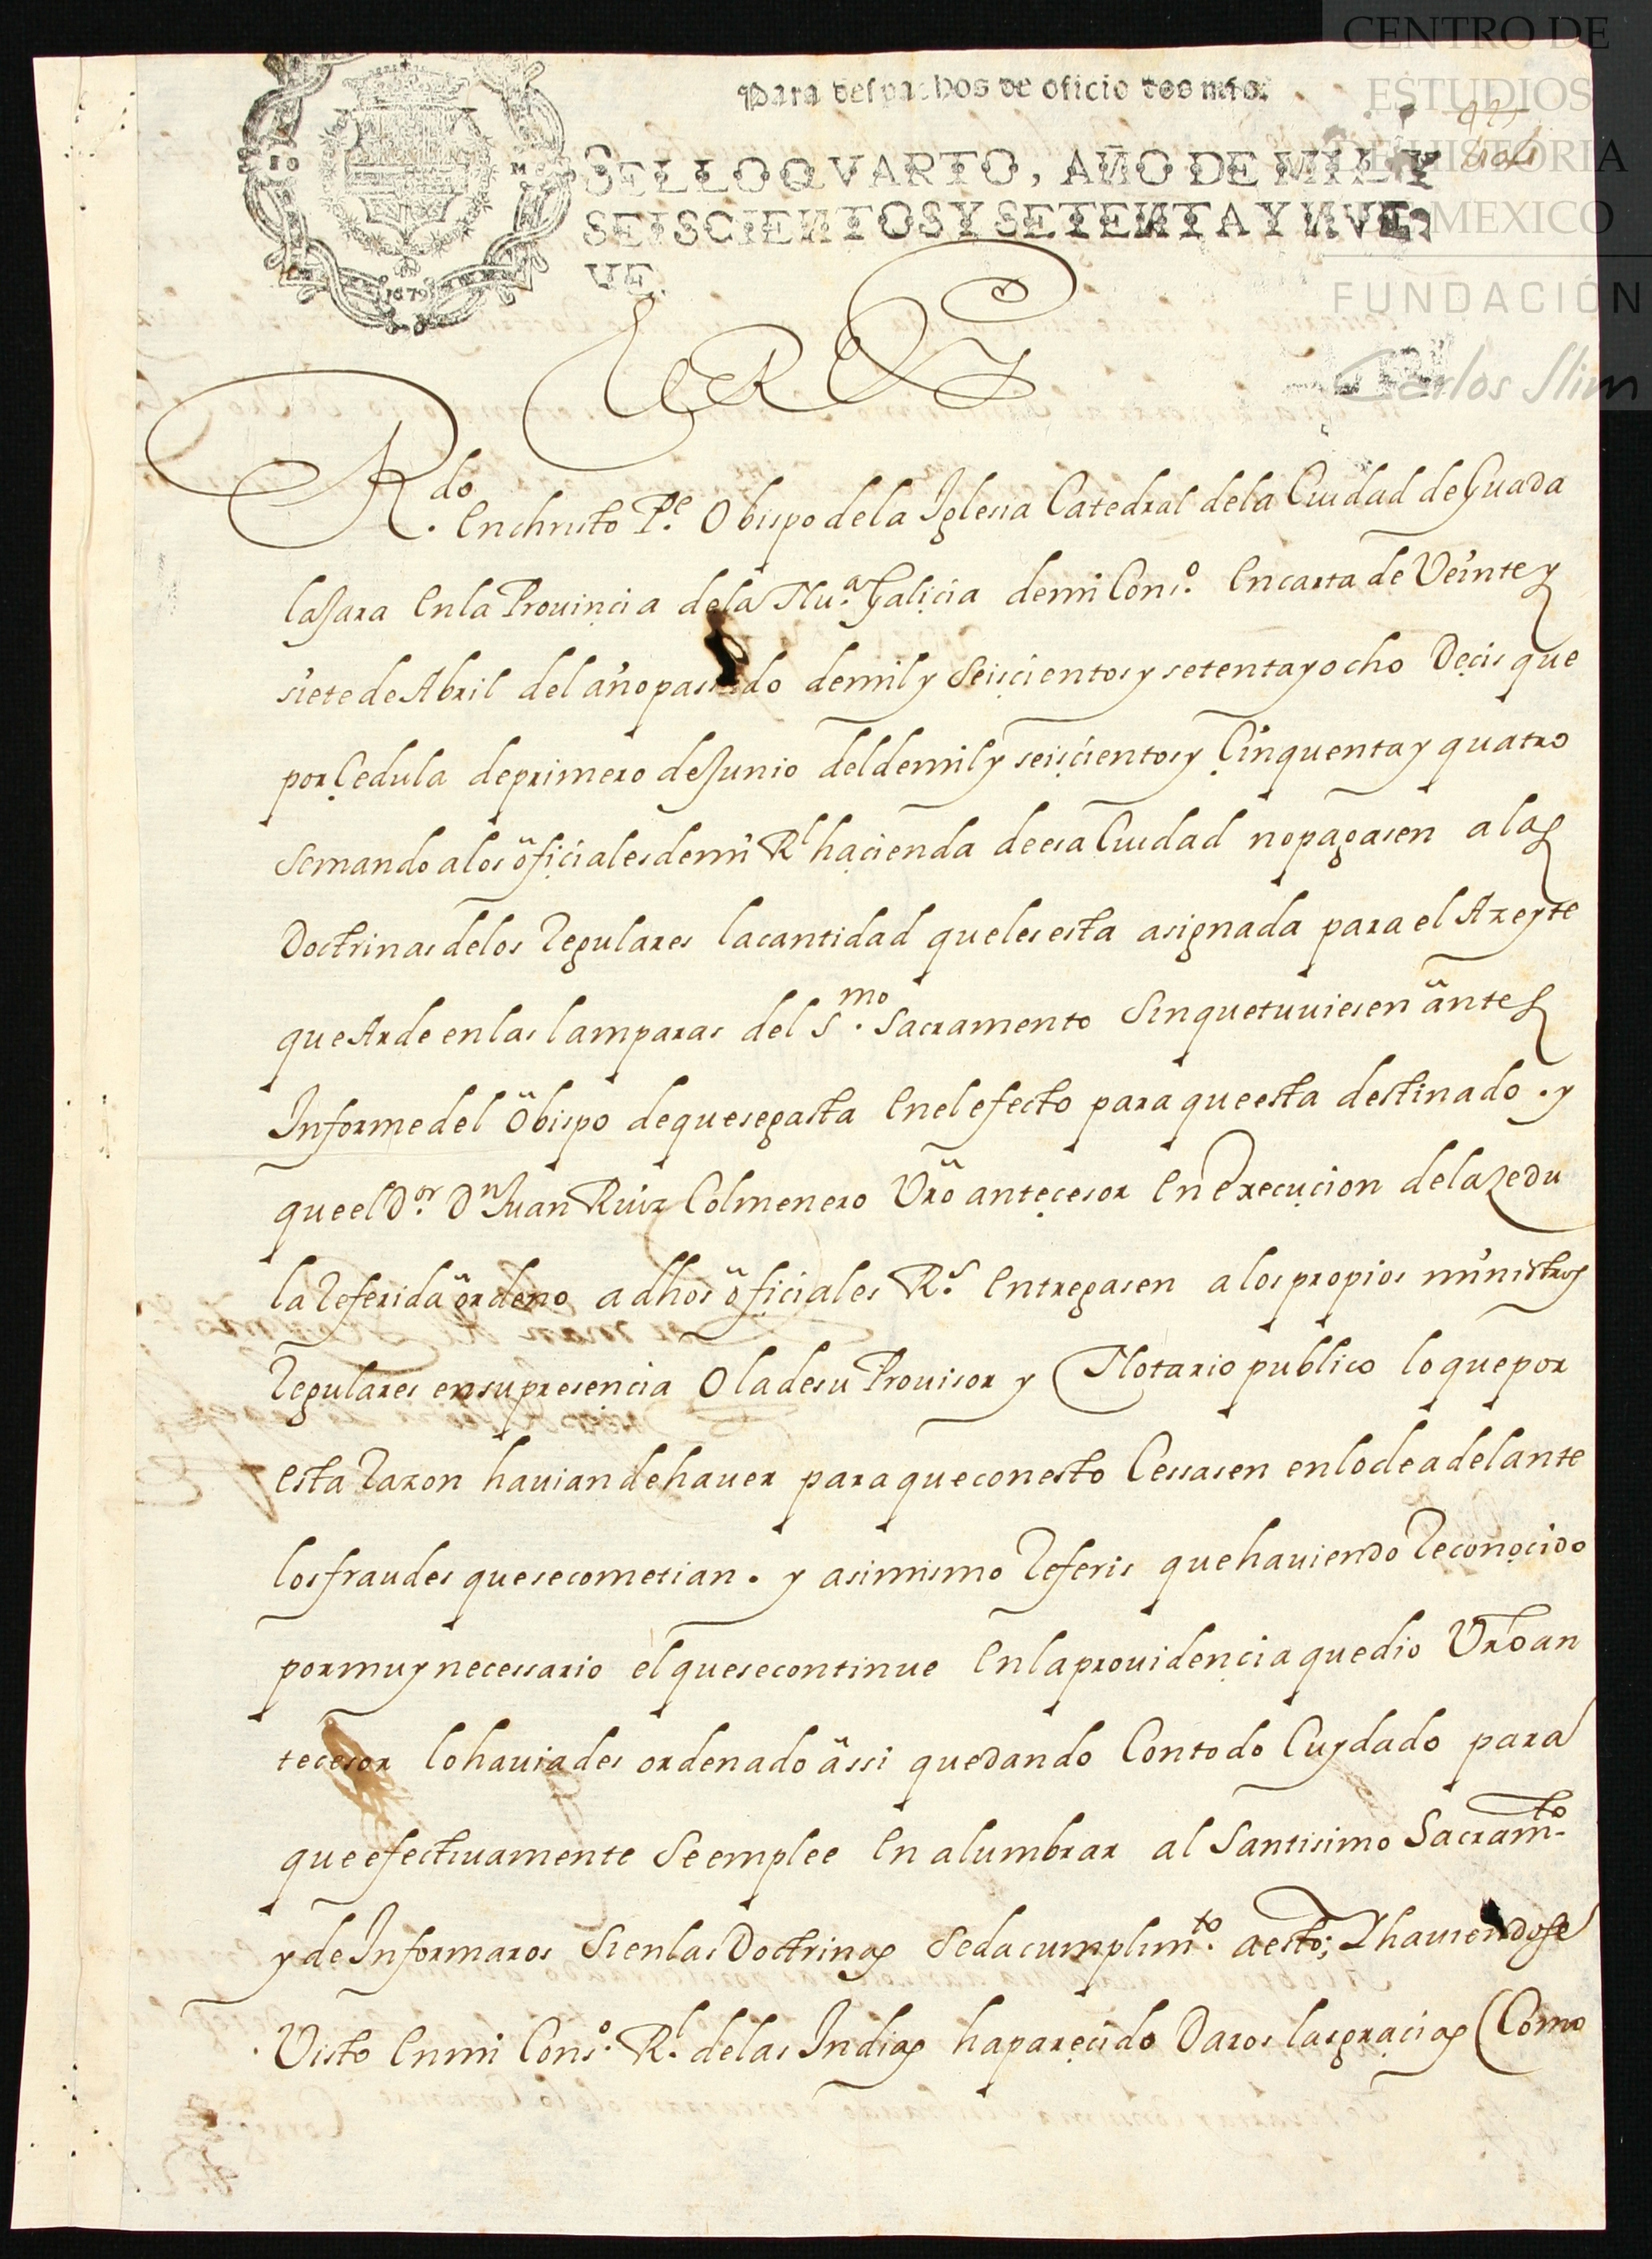 para despachos de oficio dos mrs.
CENTRO DE
ESTUDIOS
DE HISTORIA
DE MEXICO
FUNDACIÓN
Carlos Slim
SELLO QVARTO, AÑO DE MIL Y
SEISCIENTOS Y SETENTA Y NVE
VE.
1679
El Rey
R.do en christo P.e Obispo de la Iglesia Catedral de la Ciudad de Guada
laJara en la Prouinçia de la Nu.a Galiçia de mi Cons.o en carta de Veinte y
siete de Abril del año passado de mil y seisçientos y setenta y ocho Deçis que
por Çedula de primero de Junio del de mil y seisçientos y Çinquenta y quatro
se mando a los ofiçiales de mi Rl haçienda de esa Ciudad no pagasen a las
Doctrinas de los Regulares la cantidad que les esta asignada para el Azeyte
que Arde en las lamparas del S.mo Sacramento sin que tuuiesen antes
Informe del Obispo de que se gasta en el efecto para que esta destinado. y
que el D.or Dn Juan Ruiz Colmenero Vro anteçesor en Execuçion de la Zedu
la Referida ordeno a dhos ofiçiales R.s entregasen a los propios ministros
Regulares en su presençia O la de su Prouisor y Notario publico lo que por
esta Razon hauian de hauer para que con esto Cessasen en lo de adelante
los fraudes que se cometian. y asimismo Referis que hauiendo Reconoçido
por muy necessario el que se continue en la prouidençia que dio Vro an
tecesor lo hauiades ordenado assi quedando Con todo Cuydado para
que efectiuamente se emplee en alumbrar al Santisimo Sacramto
y de Informaros si en las Doctrinas se da cumplimto. a esto; Y hauiendose
Visto en mi Cons.o Rl. de las Indias ha pareçido Daros las graçias (Como